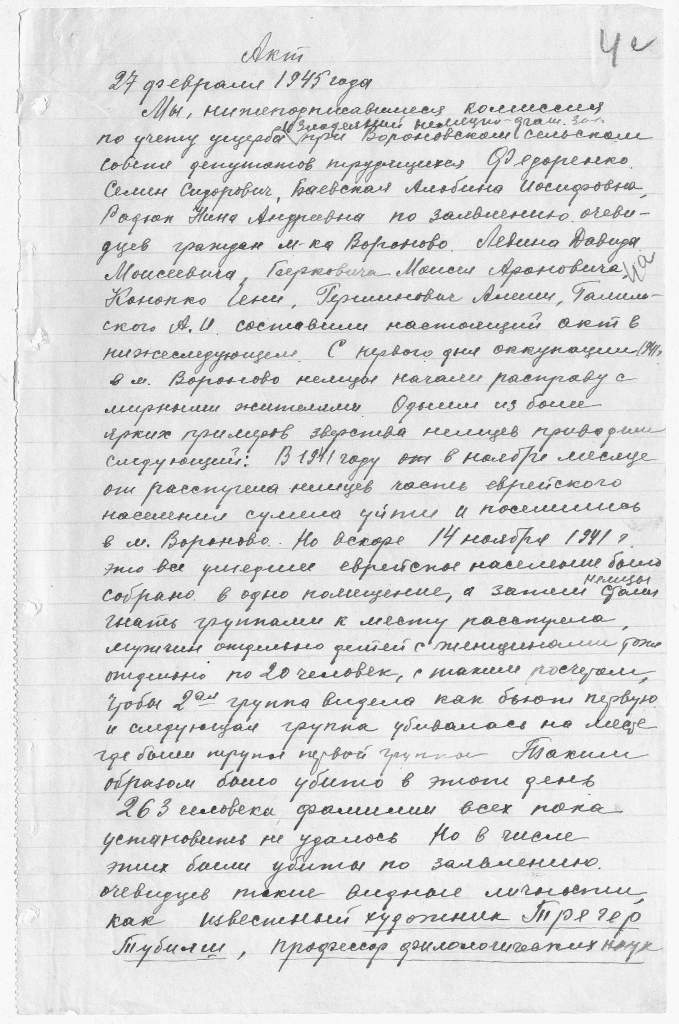 Акт
27 февраля 1945 года
Мы, нижеподписавшиеся комиссия
и злодеяний немецко-фаш. зах.
по учету ущерба при Вороновском сельском
совете депутатов трудящихся Федоренко
Семен Сидорович, Баевская Альбина Иосифовна,
Радюк Нина Андреевна по заявлению очеви-
дцев граждан м-ка Вороново Левина Давида
Моисеевича, Берковича Моисея Ароновича
Конопко Гени, Гершинович Алеши, Галим-
ского А.И. составили настоящий акт в
нижеследующем. С первого дня оккупации 1941 г.
в м. Вороново немцы начали расправу с
мирными жителями. Одним из более
ярких примеров зверства немцев приводим
следующий: В 1941 году в ноябре месяце
от расстрела немцев часть еврейского
населения сумела уйти и поселились
в м. Вороново. Но вскоре 14 ноября 1941 г.
это все ушедшее еврейское население было
немцы
собрано в одно помещение, а затем стали
гнать группами к месту расстрела,
мужчин отдельно детей с женщинами тоже
отдельно по 20 человек, с таким расчетом,
чтобы 2ая группа видела как бьют первую
и следующая группа убивалась на месте
где были трупы первой группы Таким
образом было убито в этот день
263 человека, фамилии всех пока
установить не удалось Но в числе
этих были убиты по заявлению
очевидцев такие видные личности,
как известный художник Трегер
Тубияш, профессор филологических наук